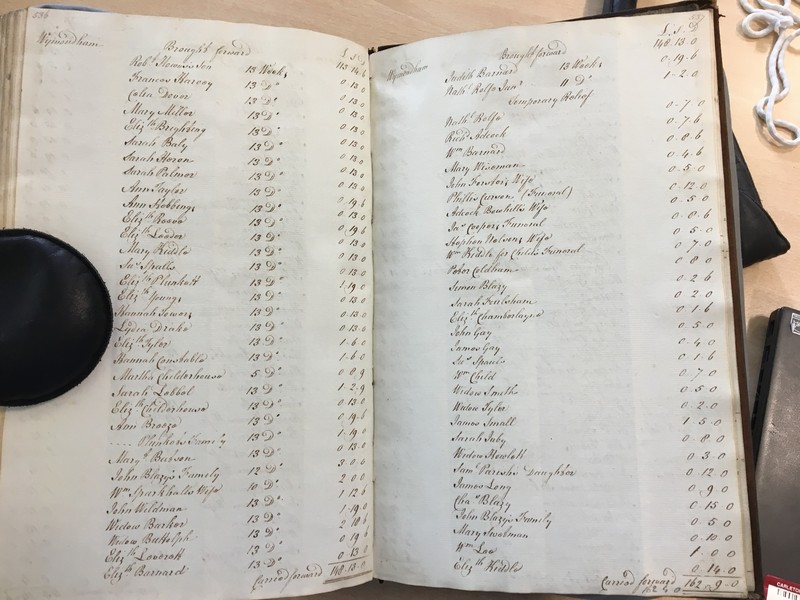 536
Wymondham Brought forward £ s D
113.14.6
Robt Howes's Son 13 Weeks 0.13.0
Frances Harvey 13 Do 0.13.0
Colin Dover 13 Do 0.13.0
Mary Millor 13 Do 0.13.0
Elizth Breghting 13 Do 0.13.0
Sarah Baly 13 Do 0.13.0
Sarah Heron 13 Do 0.13.0
Sarah Palmer 13 Do 0.13.0
Ann Taylor 13 Do 0.19.6
Ann Hobbings 13 Do 0.13.0
Elizth Reave 13 Do 0.19.6
Elizth Leeder 13 Do 0.13.0
Mary Kiddle 13 Do 0.13.0
Jno Spalls 13 Do 0.13.0
Elizth Plunkett 13 Do 1.19.0
Elizth Young 13 Do 0.13.0
Hannah Sewers 13 Do 0.13.0
Lydia Drake 13 Do 0.13.0
Elizth Tylor 13 Do 1.6.0
Hannah Constable 13 Do 1.6.0
Martha Childerhouse 5 Do 0.0.9
Sarah Lobbal 13 Do 1.2.9
Elizth Childerhouse 13 Do 0.13.0
Ann Breeze 13 Do 0.19.6
.... Plunkets Family 13 Do 1.19.0
Mary Batson 13 Do 0.13.0
John Blazy's Family 12 Do 3.0.0
Wm Sparkhalls Wife 10 Do 2.0.0
John Wildman 13 Do 1.12.6
Widow Barker 13 Do 1.19.0
Widow Battelph 13 Do 2.10.6
Elizth Lovcratt 13 Do 0.19.6
Elizth Barnard 13 Do 0.13.0
Carried forward 148.13.0
537
Wymondham Brought forward £ s D
148.13.0
Judith Barnard 13 Weeks 0.19.6
Nathl Rolfe Junr 11 Do 1.2.0
Temporary Relief
Nathl Rolfe 0.7.0
Richd Adcock 0.7.6
Wm Barnard 0.8.6
Mary Wiseman 0.4.6
John Forster's Wife 0.5.0
Phillis Curson (Funeral) 0.12.0
Adcock Bowhills Wife 0.5.0
Jno Coopers Funeral 0.0.6
Stephen Nelsons Wife 0.5.0
Wm Kiddle for Childs Funeral 0.7.0
Peter Coldham 0.8.0
Simon Blazy 0.2.6
Sarah Frulsham 0.2.0
Elizth Chamberlayne 0.1.6
John Gay 0.5.0
James Gay 0.4.0
Jno Spauls 0.1.6
Wm Child 0.7.0
Widow Smith 0.5.0
Widow Tyler 0.2.0
James Small 1.5.0
Sarah Juby 0.8.0
Widow Howlett 0.3.0
Saml Parishs Daughter 0.12.0
James Long 0.9.0
Chas Blazy 0.15.0
John Blazy's Family 0.5.0
Mary Swolman 0.10.0
Wm Law 1.0.0
Elizth Kiddle 0.14.0
Carried forward 162.9.0
162.4.0
CARLETON